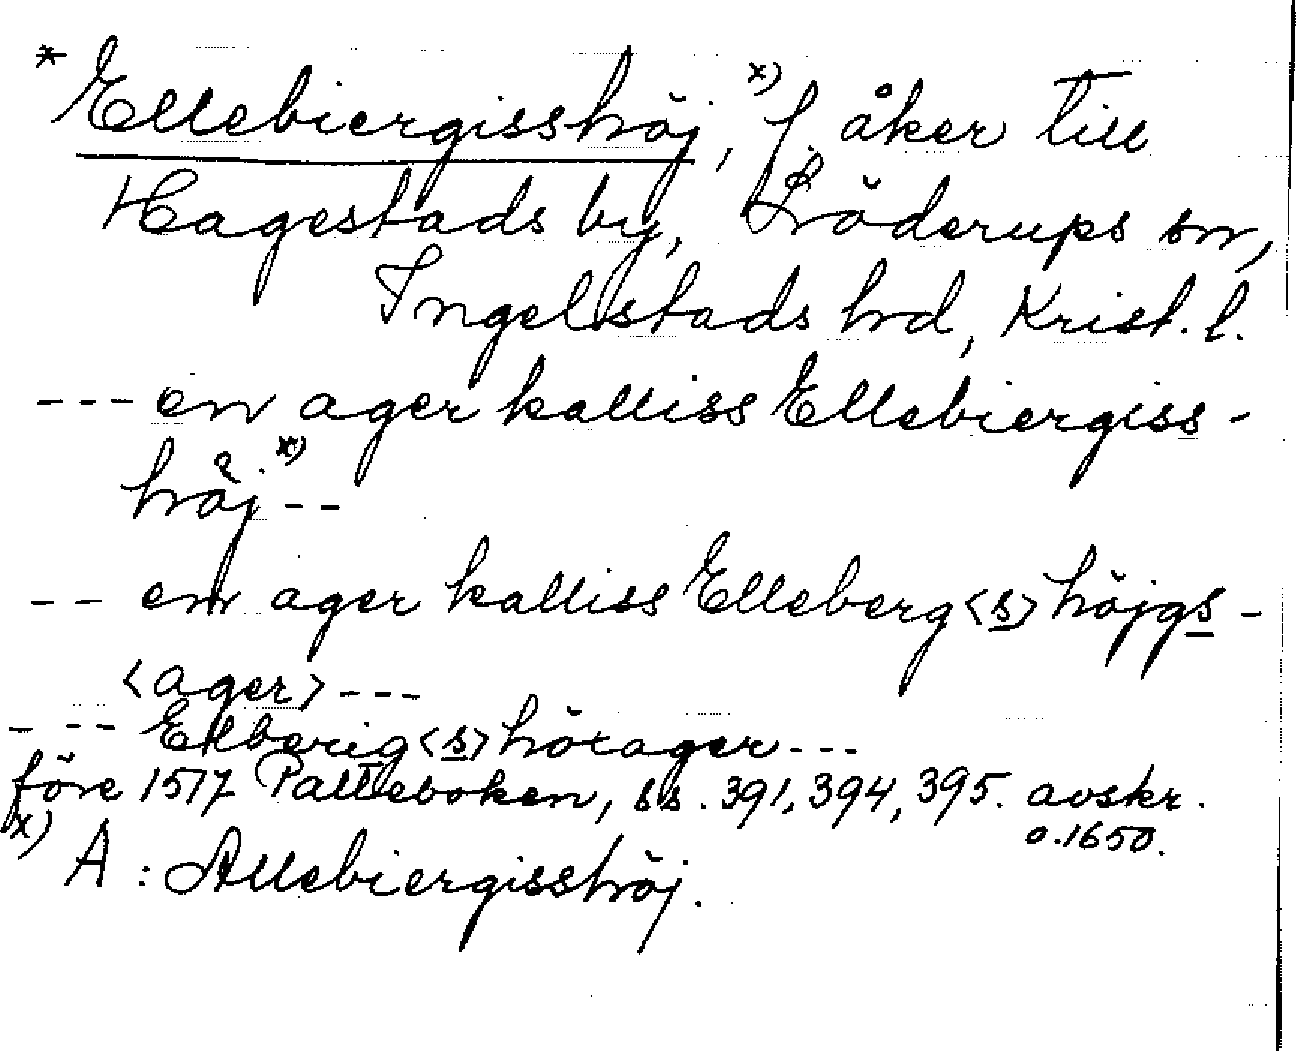 * Ellebiergisshöj, x) f. åker till
Hagestads by, Löderups sn,
Ingelstads hd, Krist. l.
--- en ager kalliss Ellebiergiss-
höj x) --
-- en ager kalliss Elleberg<s>höjgs-
<ager> ---
--- Elberig<s>hörager ---
före 1517 Palteboken, ss. 391, 394, 395. avskr.
o. 1650.
x) A: Allebiergisshöj.